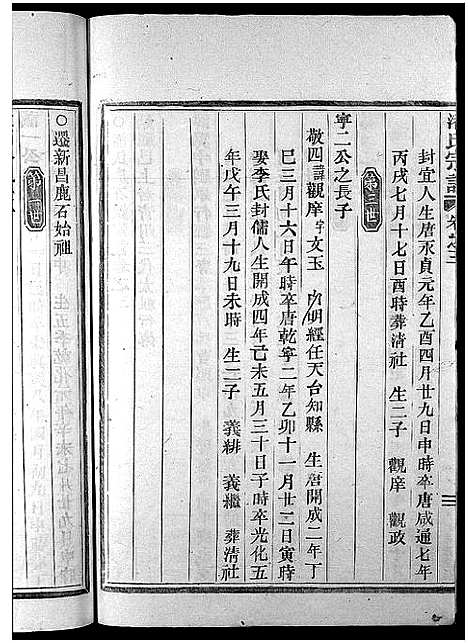 氏宗譜 卷之三
封宜人生唐永貞元年乙酉四月廿九日申時卒唐咸通七年
丙戌七月十七日酉時葬清社 生二子 觀摩 觀政
第三世
寧二公之長子
敬四諱觀摩字文玉 由明經任天台知縣 生唐開成二年丁
巳三月十六日午時卒唐乾寧二年乙卯十一月廿二日寅時
娶李氏封儒人生開成四年己未五月三十日子時卒光化五
年戊午三月十九日未時 生二子 義緋 義繼 葬清社
第四世
○遷新昌鹿石始祖